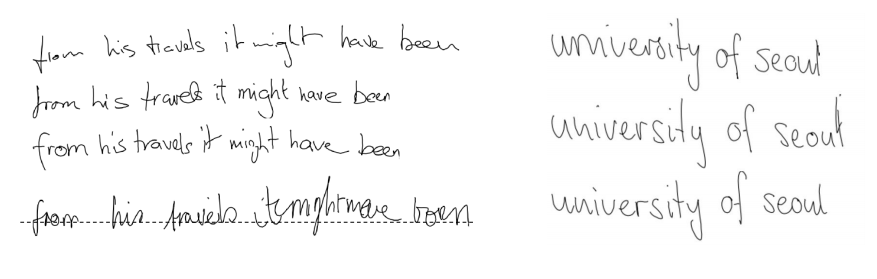 from his travels it might have been
from his travels it might have been
from his travels it might have been
from his travels it might have been
university of seoul
university of seoul
university of seoul